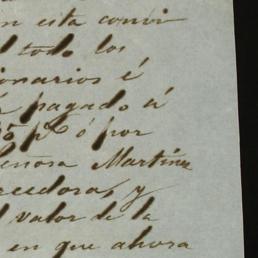 n esta convi
l todo los
ionarios é
pagado á
ó por
eñosa Martinez
reedora, y
l valor de la
en que ahora